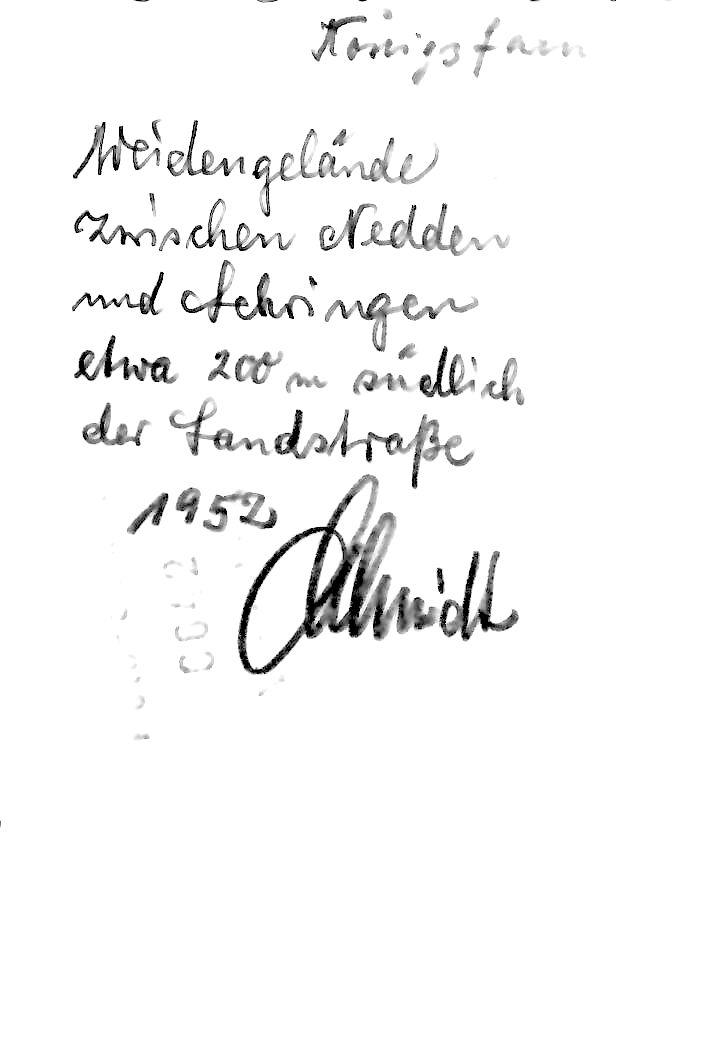 Königsfarn
Weidengelände
zwischen Nedden
und Sehringen
etwa 200 m südlich
der Landstraße
1952
Schmidt